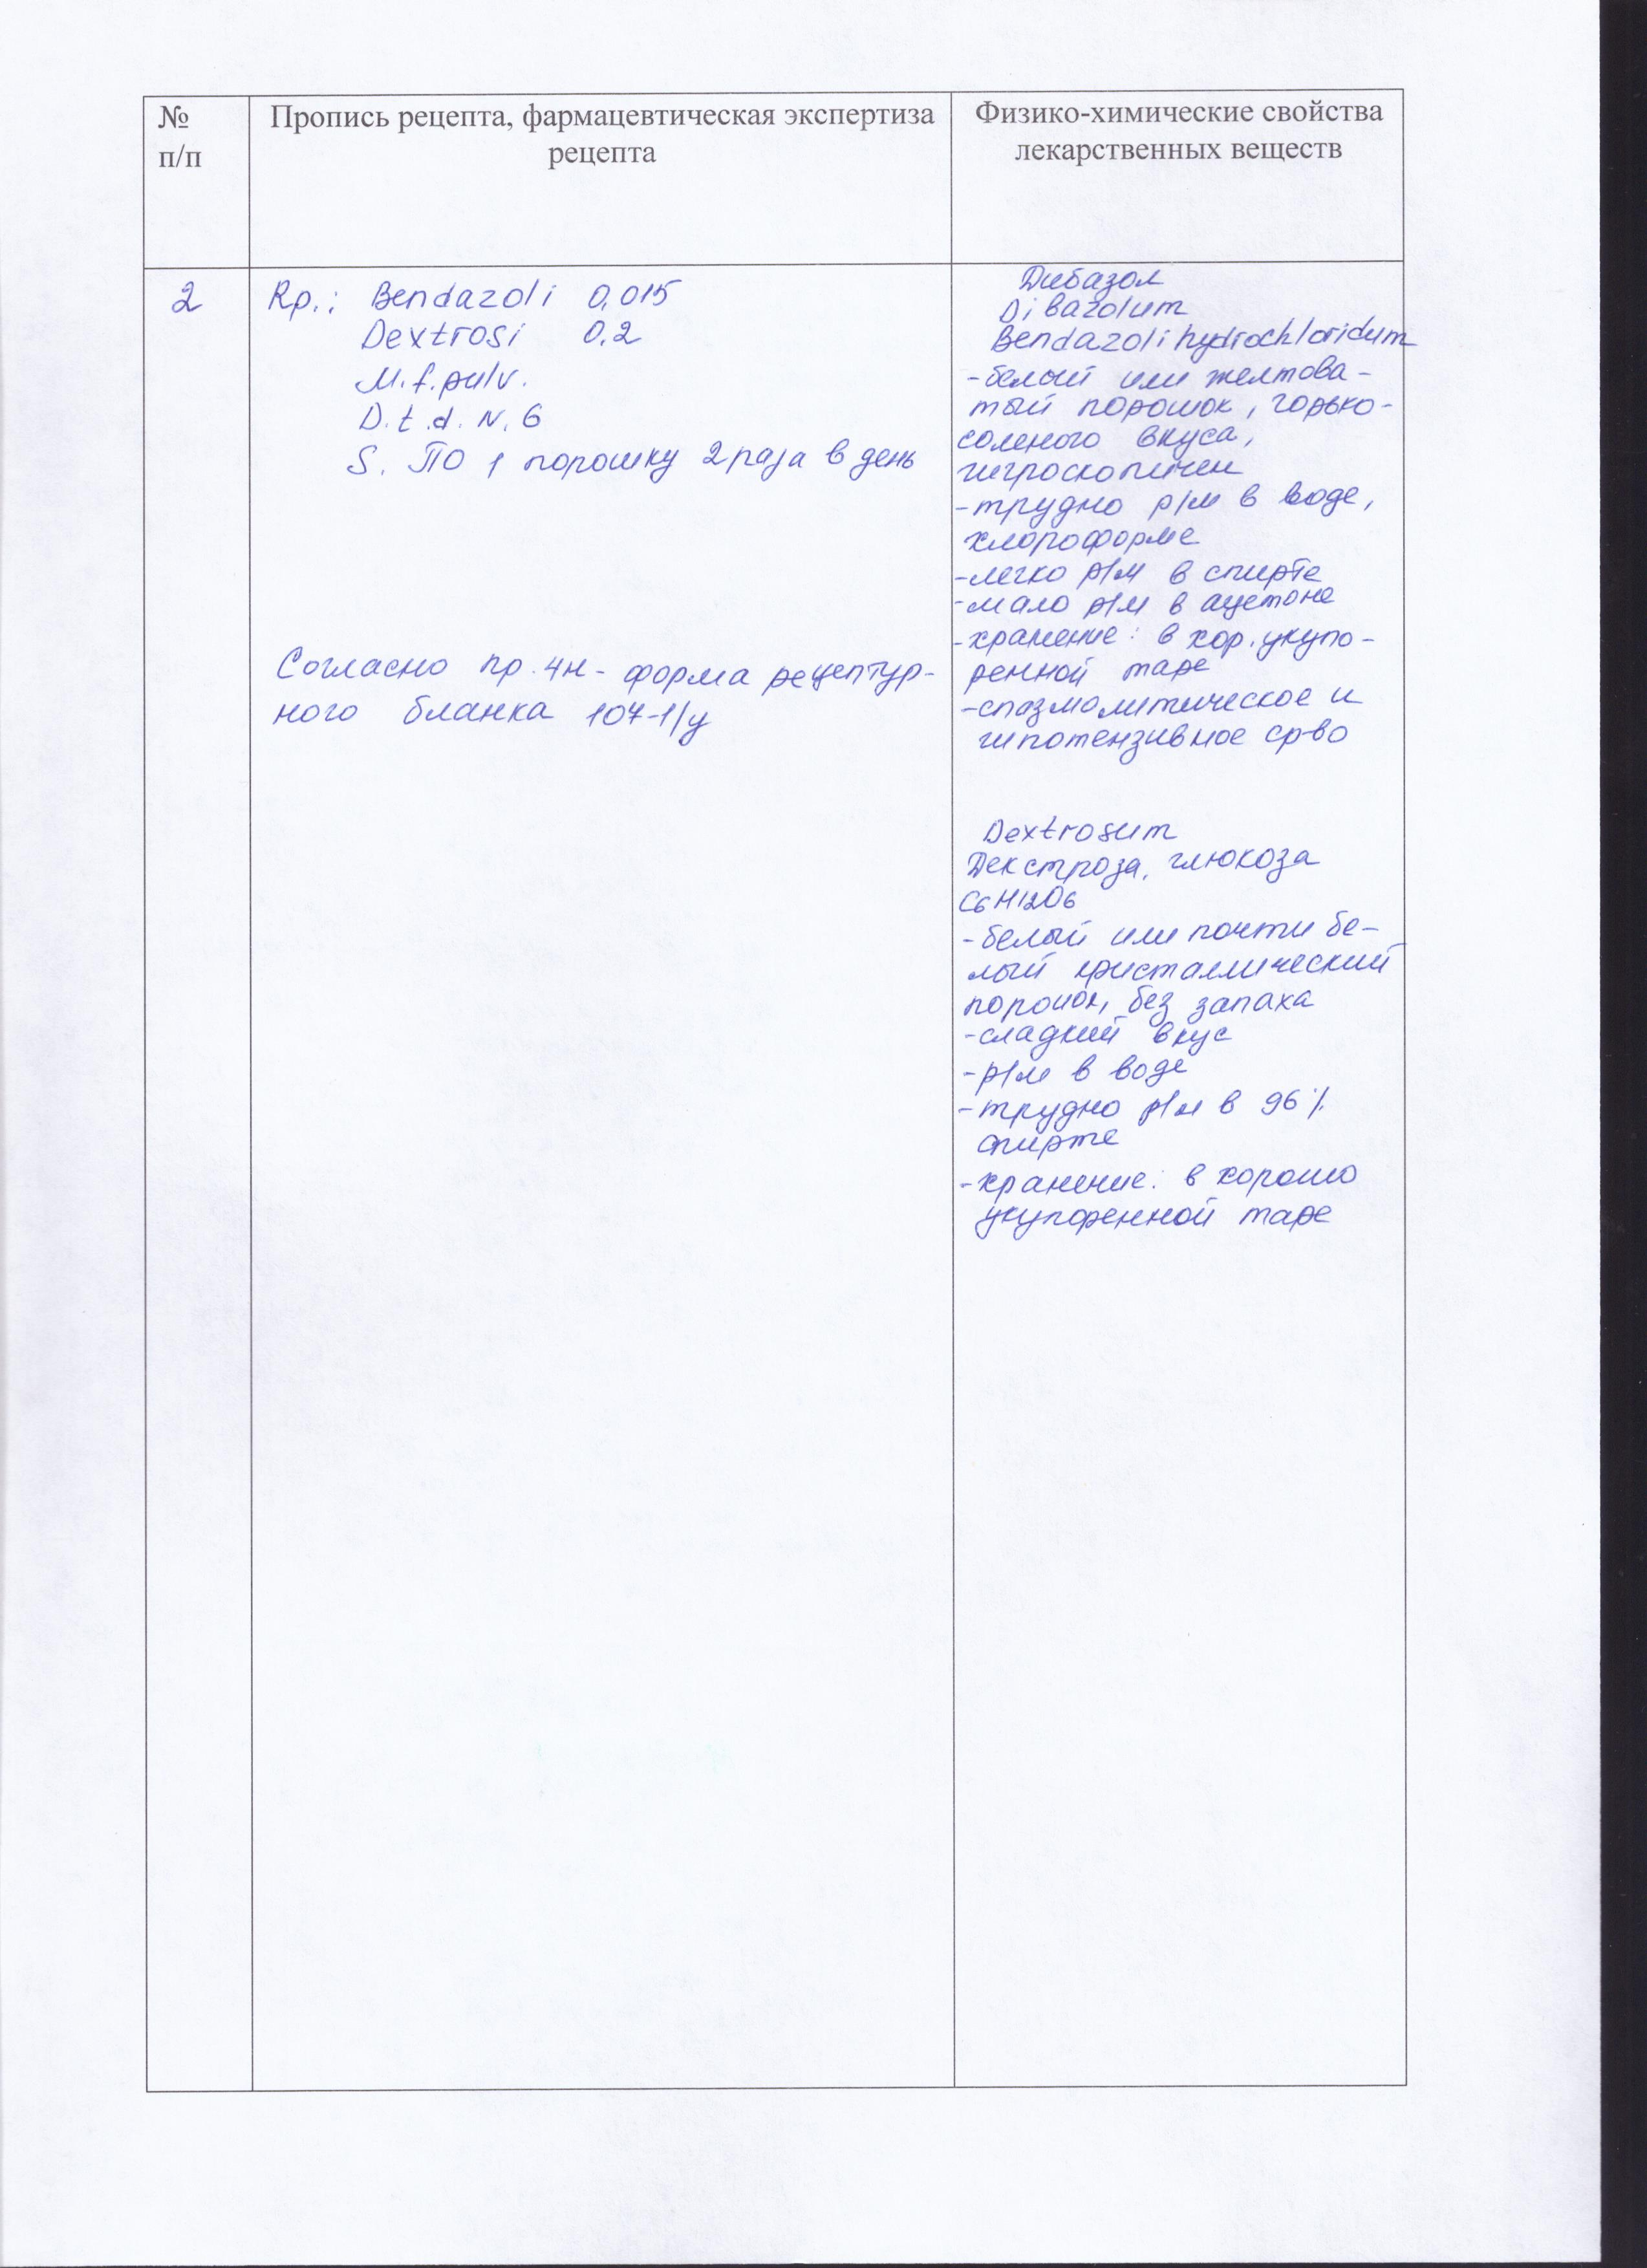 №
п/п
Пропись рецепта, фармацевтическая экспертиза
рецепта
Физико-химические свойства
лекарственных веществ
2
Rp.: Bendazoli 0,015
Dextrosi 0,2
M.f.pulv.
D.t.d. N. 6
S. ПО 1 порошку 2 раза в день
Согласно пр. 4н - форма рецептур-
ного бланка 107-1/у
Дибазол
Dibazolum
Bendazoli hydrochloridum
-белый или желтова-
тый порошок, горько-
соленого вкуса,
гигроскопичен
-трудно р/м в воде,
хлороформе
-легко р/м в спирте
-мало р/м в ацетоне
-хранение: в хор. укупо-
ренной таре
-спазмолитическое и
гипотензивное ср-во
Dextrosum
Декстроза, глюкоза
C6H12O6
-белый или почти бе-
лый кристаллический
порошок, без запаха
-сладкий вкус
-р/м в воде
-трудно р/м в 96%
спирте
-хранение: в хорошо
укупоренной таре